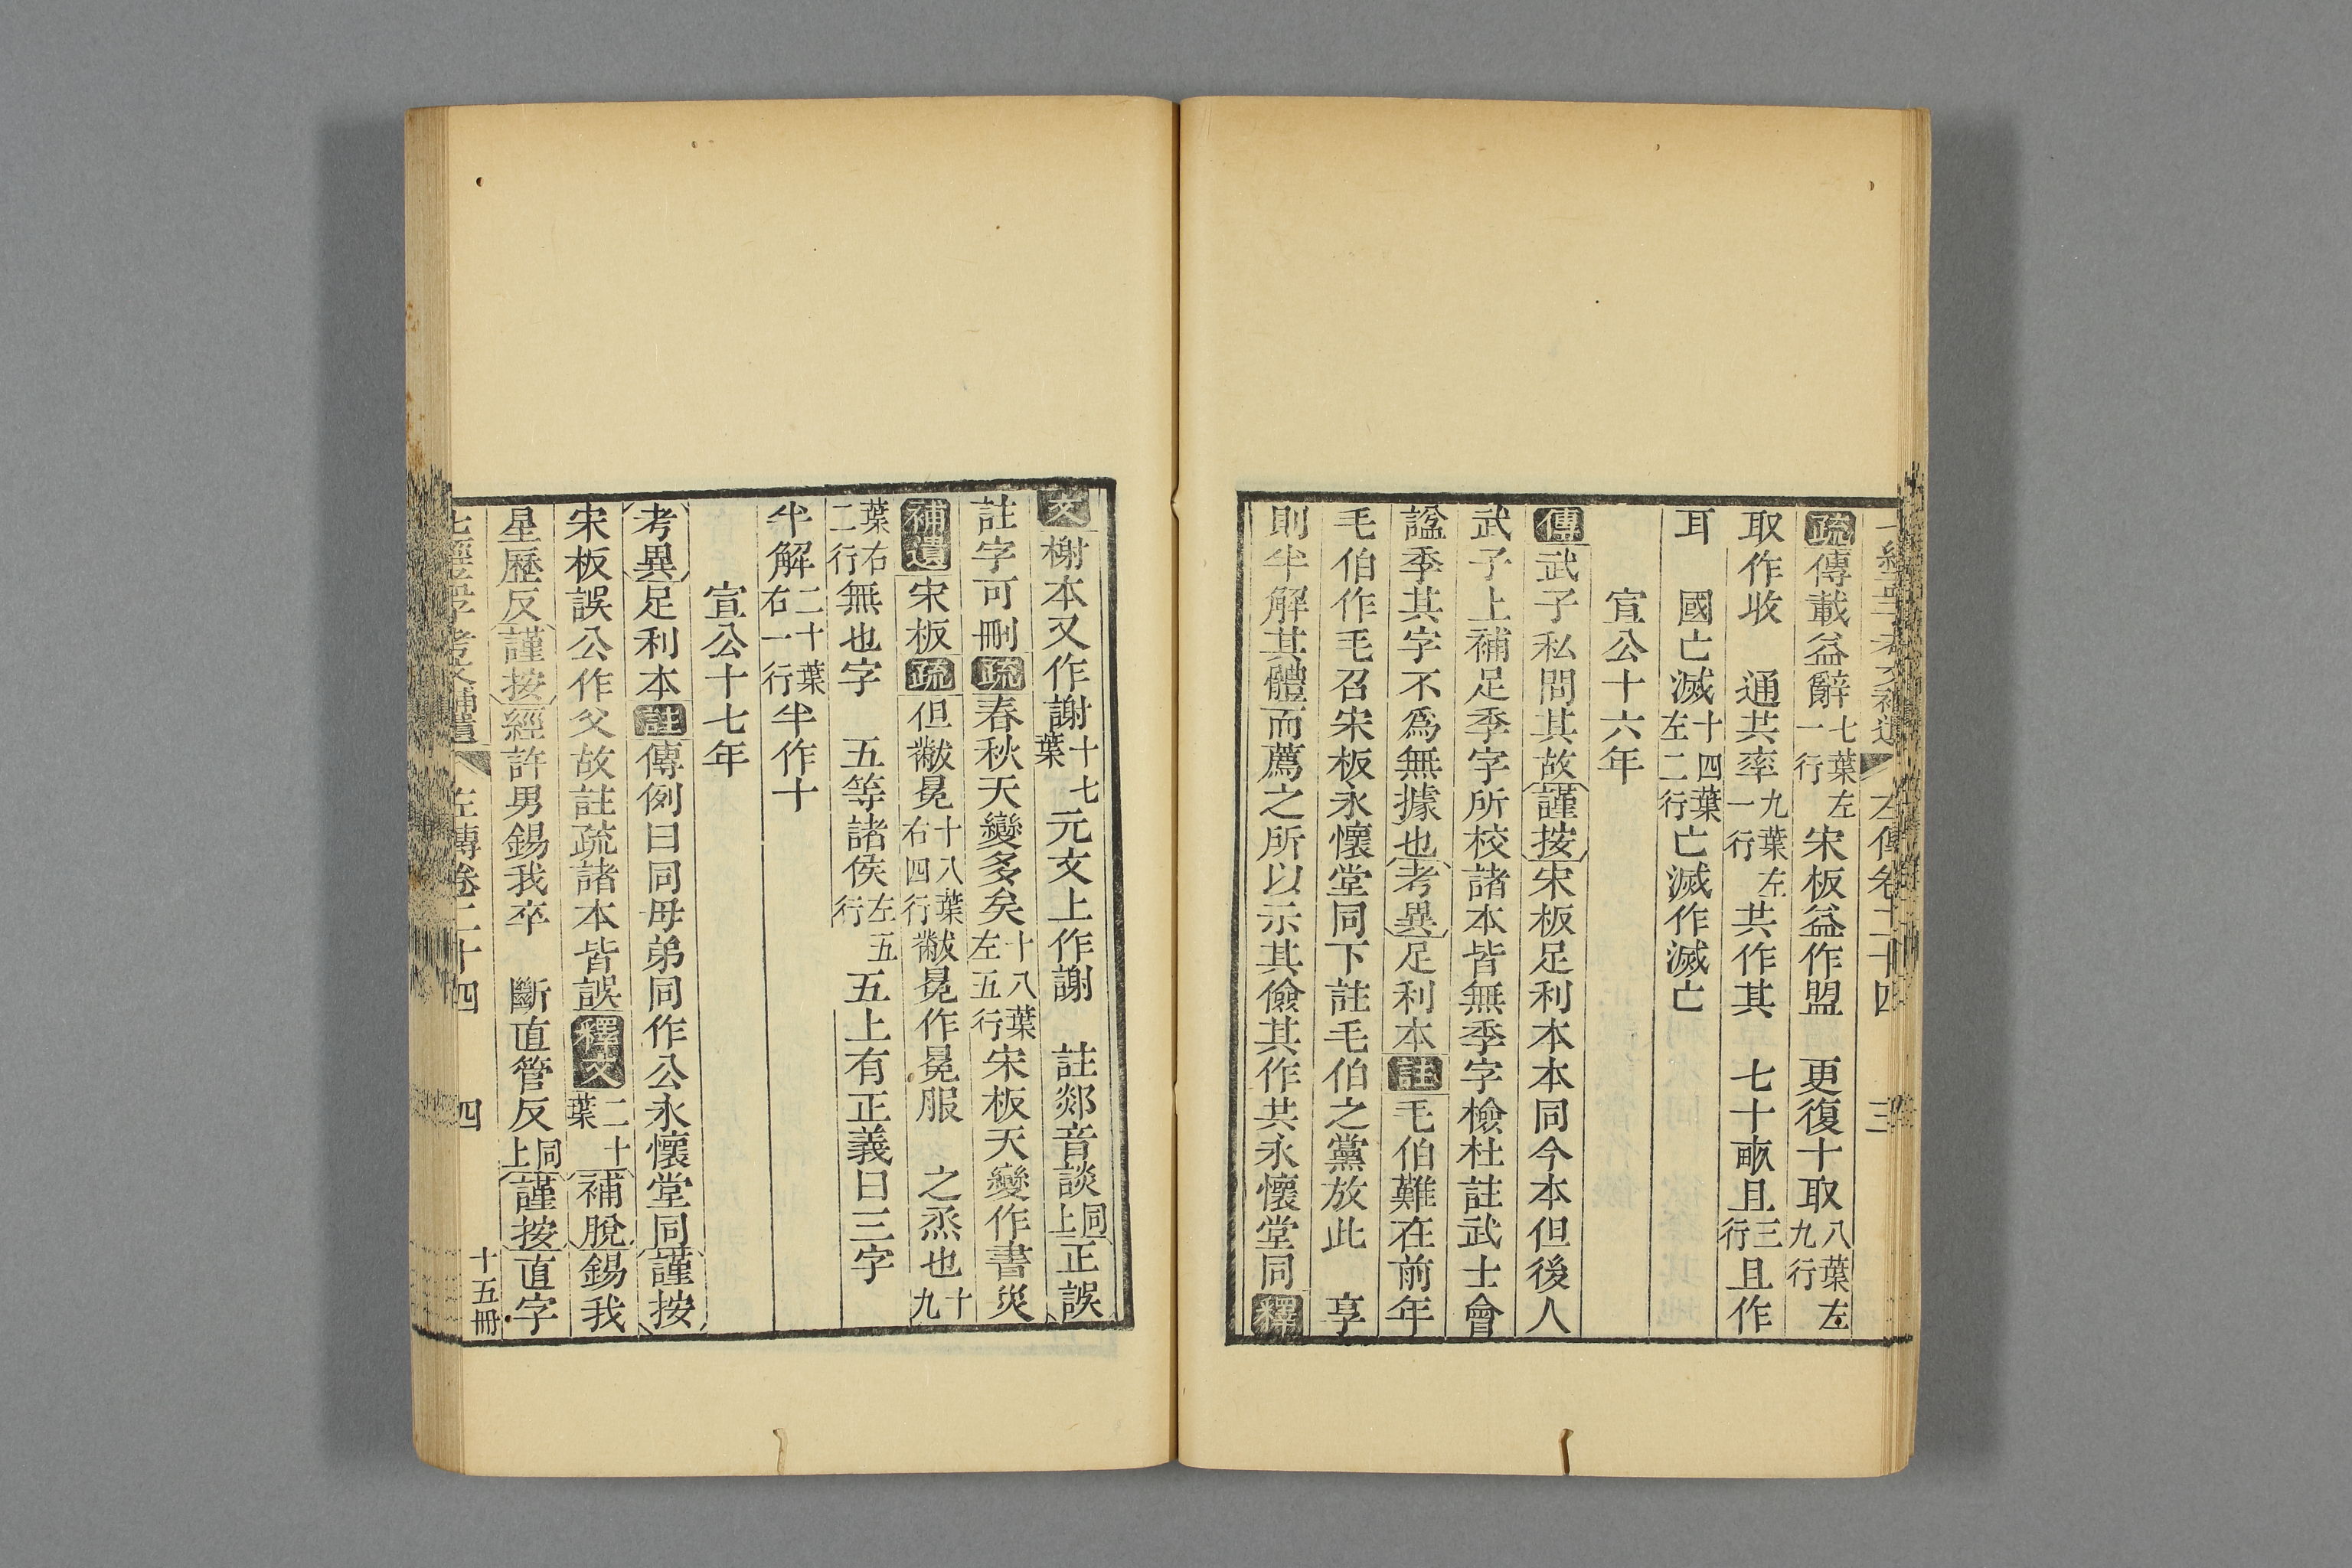 疏傳載益辭七葉左一行宋板益作盟　更復十取八葉左九行
取作收　通共率九葉左一行共作其　七十畝且三行且作
耳　國亡滅十四葉左二行亡滅作滅亡
宣公十六年
傳武子私問其故謹按宋板足利本本同今本但後人
武子上補足季字所校諸本皆無季字檢杜註武士會
諡季其字不爲無據也考異足利本註毛伯難在前年
毛伯作毛召宋板永懷堂同下註毛伯之黨放此　享
則半解其體而薦之所以示其儉其作共永懷堂同釋
文榭本又作謝十七葉元文上作謝　註郯音談同上正誤
註字可刪疏春秋天變多矣十八葉左五行宋板天變作書災
補遺宋板疏但黻冕十八葉右四行黻冕作冕服　之烝也十九
葉右二行無也字　五等諸侯左五行五上有正義曰三字
半解二十葉右一行半作十
宣公十七年
考異足利本註傳例曰同母弟同作公永懷堂同謹按
宋板誤公作父故註疏諸本皆誤釋文二十葉補脫錫我
星歷反謹按經許男錫我卒　斷直管反同上謹按直字
左傳卷二十四　四　十五冊